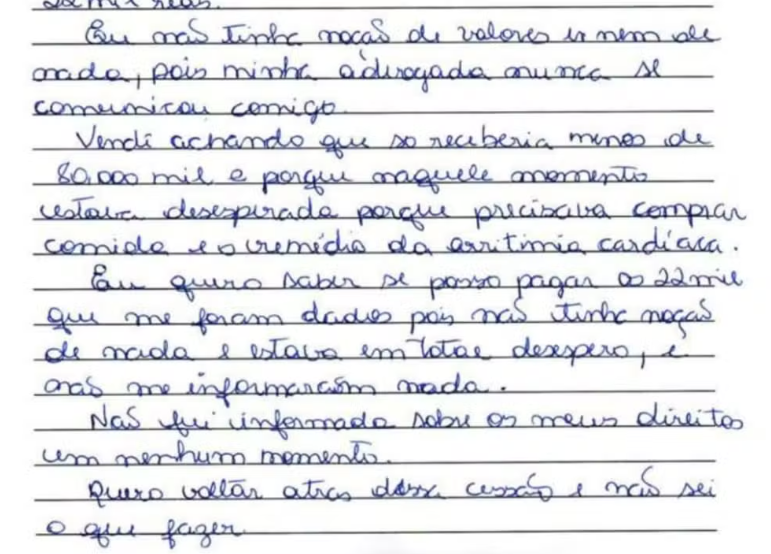 22 mil reais.
Eu não tinha noção de valores e nem de
nada, pois minha adivogada nunca se
comunicou comigo.
Vendi achando que so receberia menos de
80,000 mil e porque naquele momento
estava desesperada porque precisava comprar
comida e o remédio da arritimia cardíaca.
Eu quero saber se posso pagar os 22 mil
que me foram dados pois não tinha noção
de nada e estava em total desespero, e
não me informaram nada.
Não fui informada sobre os meus direitos
em nenhum momento.
Quero voltar atras dessa cessão e não sei
o que fazer.